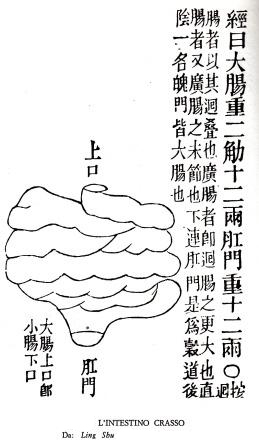 經曰大腸重二觔十二兩肛門重十二兩○按迴
腸者以其迴叠也廣腸者卽迴腸之更大也直
腸者又廣腸之末節也下連肛門是為穀道後
陰一名魄門皆大腸也
上口
肛門
大腸上口卽
小腸下口
L'INTESTINO CRASSO
Da: Ling Shu